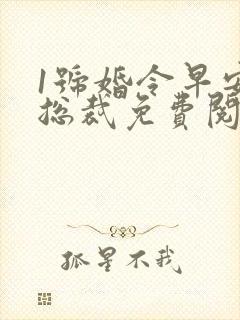 1號婚令早安
總裁免費閱
孤星不我